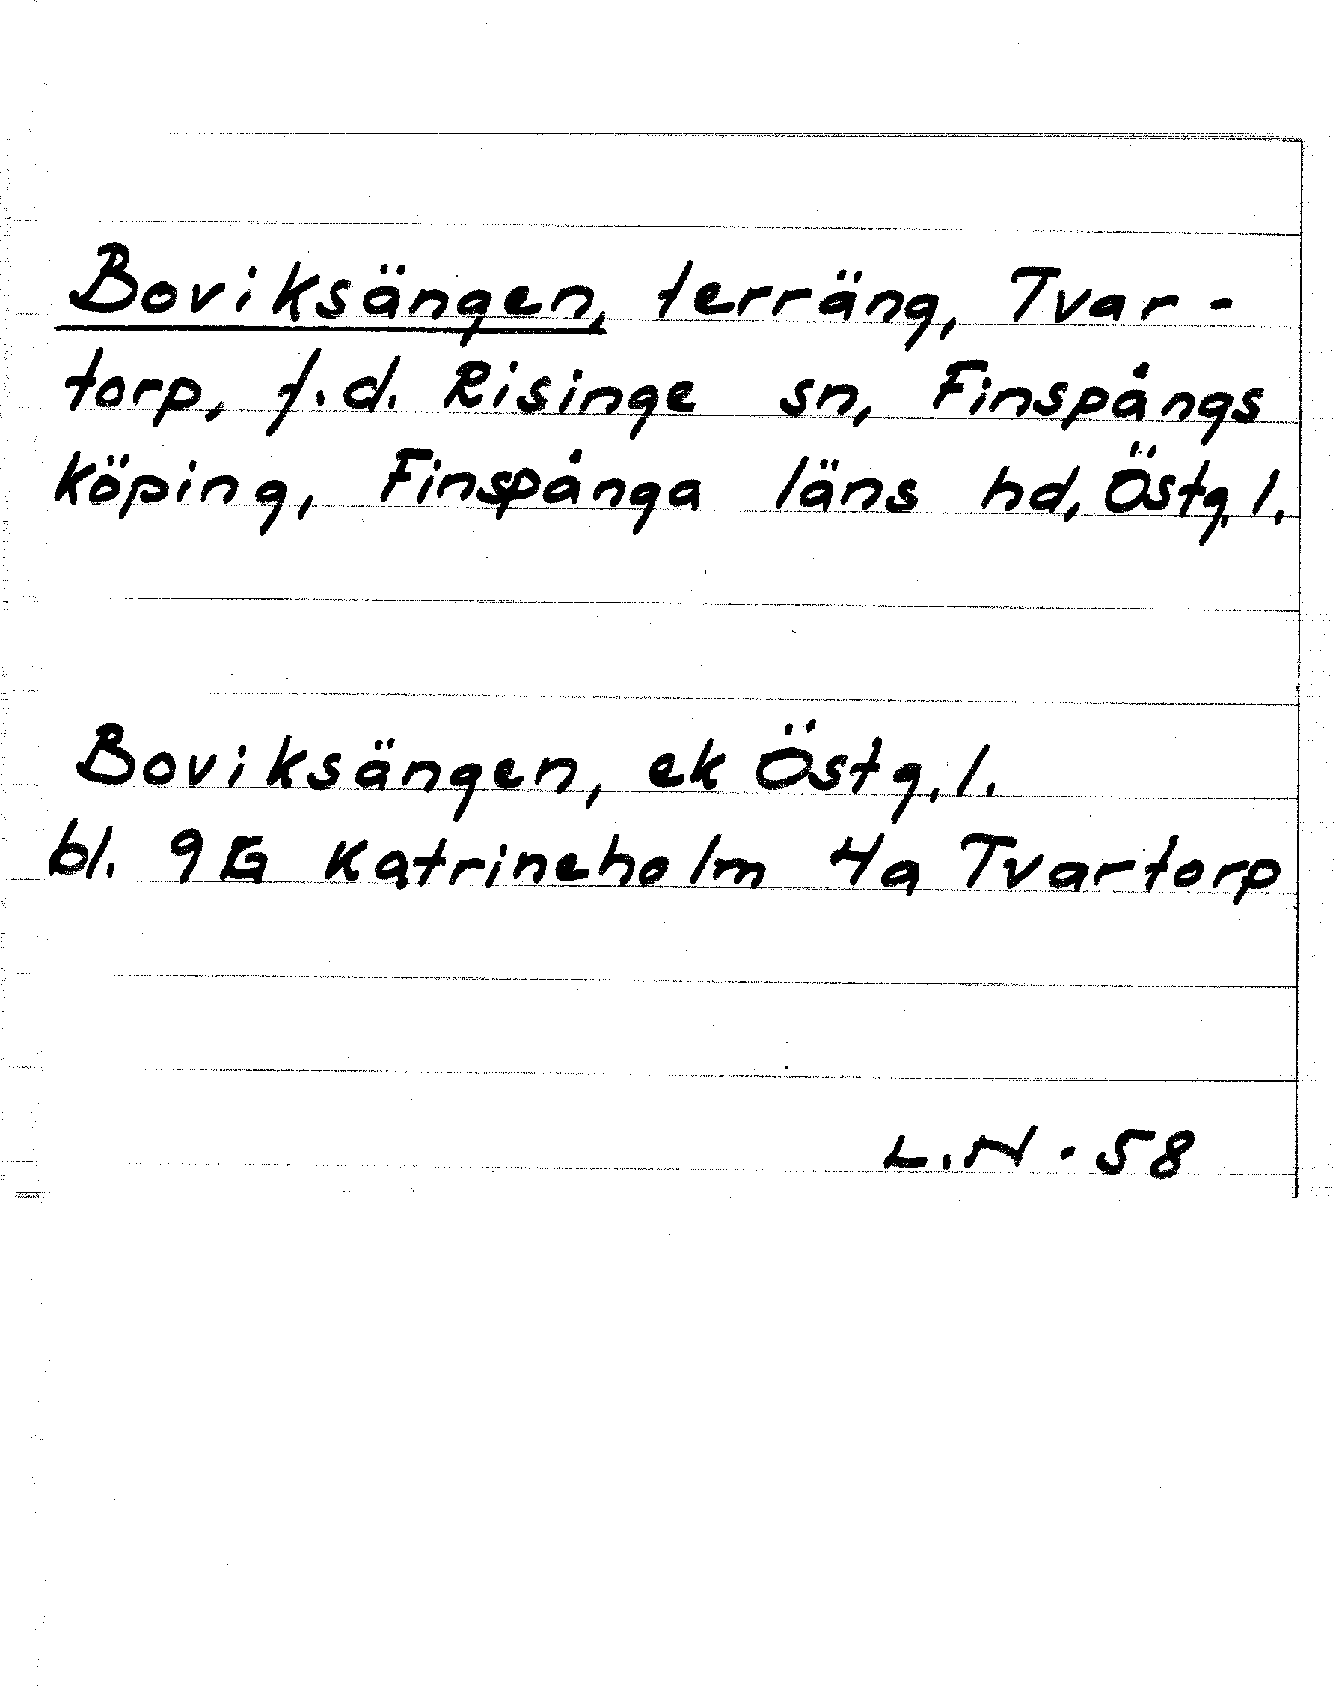 Boviksängen, terräng, Tvar-
torp, f.d. Risinge sn, Finspångs
köping, Finspånga läns hd, Östg. l.
Boviksängen, ek Östg. l.
bl. 9G Katrineholm 4a Tvartorp
L.N. 58